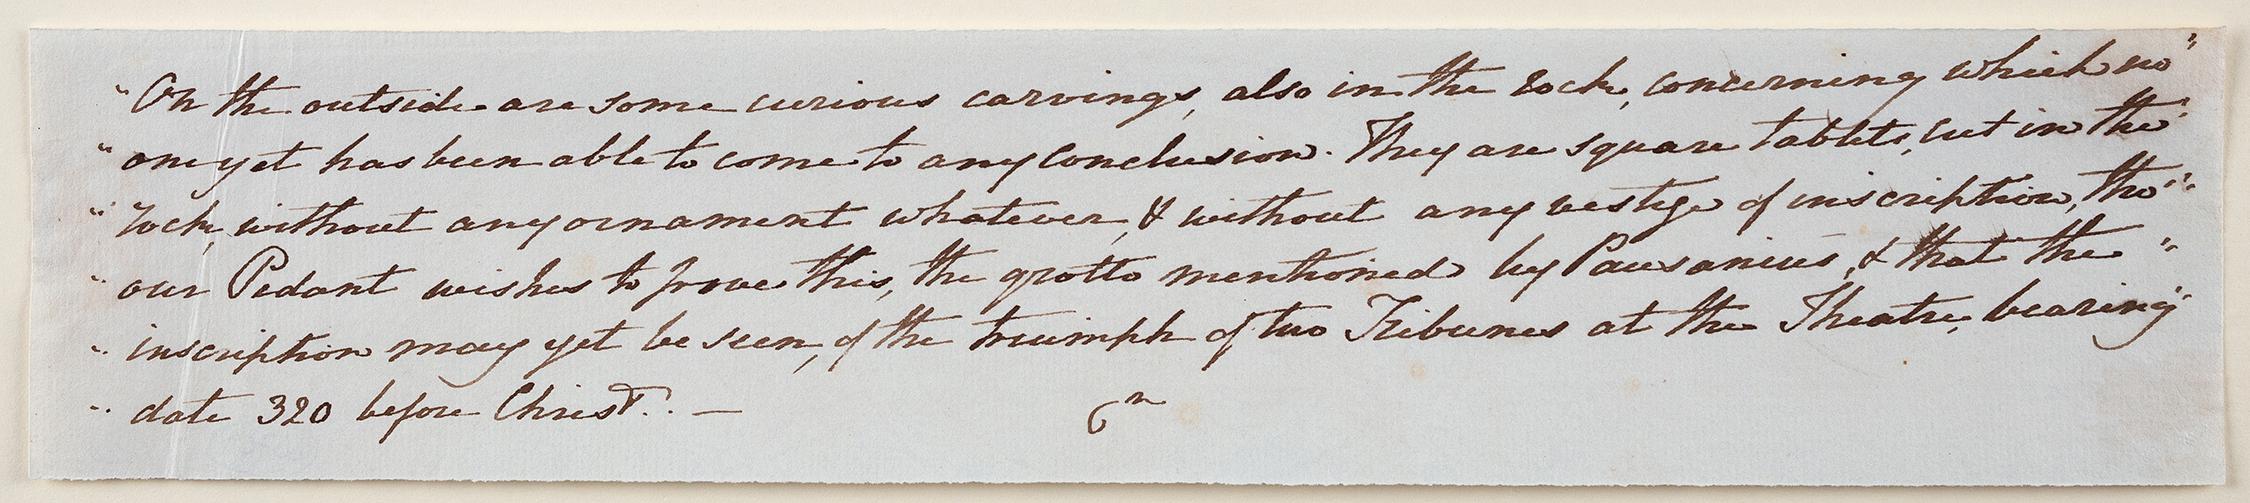 "On the outside are some curious carvings, also in the rock, concerning which no"
"one yet has been able to come to any conclusion. They are square tablets, cut in the"
"rock, without any ornament whatever, & without any vestige of inscription, tho'"
"our Pedant wishes to prove this, the grotto mentioned by Pausanius, & that the"
"inscription may yet be seen, of the triumph of two Tribunes at the Theatre, bearing"
"date 320 before Christ." —